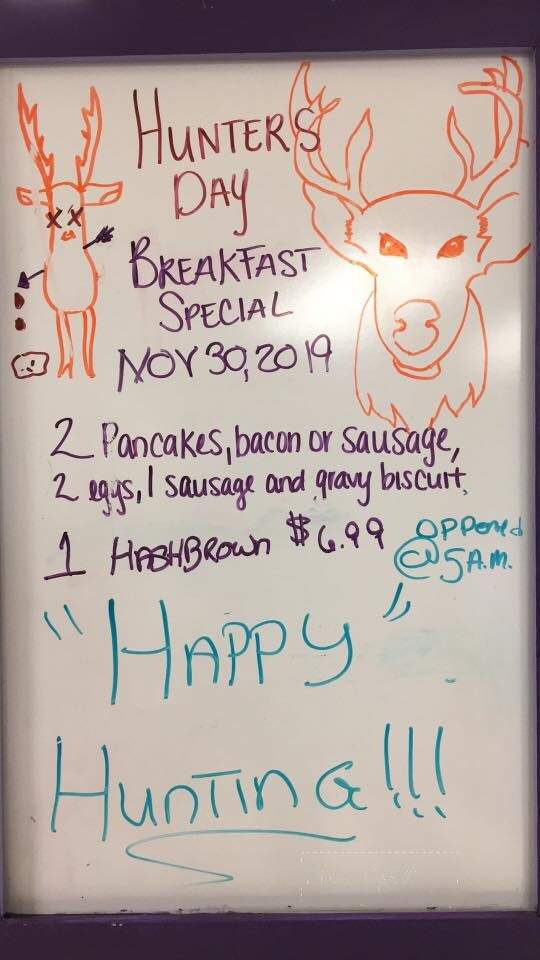 HUNTERS
DAY
BREAKFAST
SPECIAL
NOV 30, 2019
2 Pancakes, bacon or sausage,
2 eggs, 1 sausage and gravy biscuit,
1 HASHBROWN $6.99
OPPened
@ 5 A.M.
"HAPPY"
HUNTING!!!